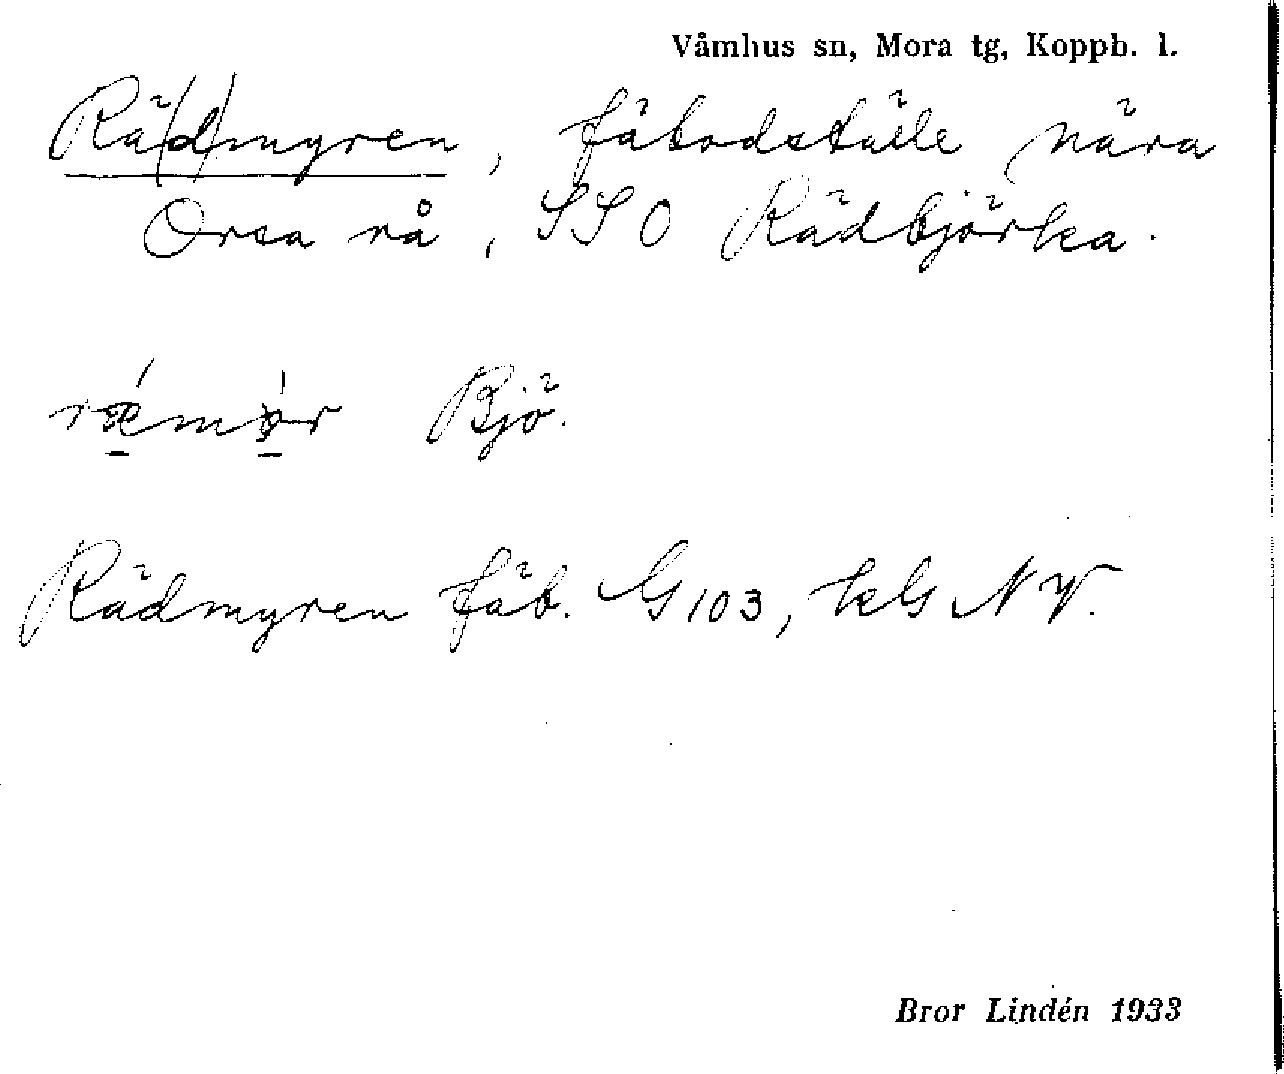 Våmhus sn, Mora tg, Koppb. l.
Rä(d)myren, fäbodställe nära
Orsa rå, SSO Rädbjörka.
Bjö.
Rädmyren fäb. G103, kG NV.
Bror Lindén 1933